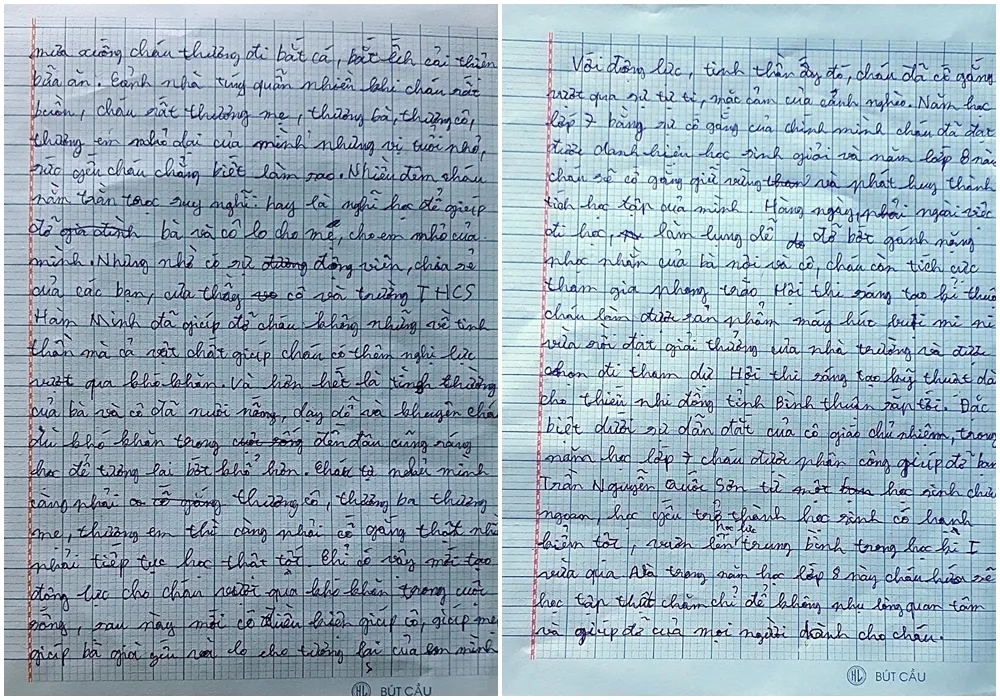 mưa xuống cháu thường đi bắt cá, bắt ếch cải thiện
bữa ăn. Cảnh nhà túng quẩn nhiều khi cháu rất
buồn, cháu rất thương mẹ, thương bà, thương cô,
thương em nhỏ dại của mình nhưng vì tuổi nhỏ,
sức yếu cháu chẳng biết làm sao. Nhiều đêm cháu
nằm trằn trọc suy nghĩ hay là nghỉ học để giúp
đỡ gia đình bà và cô lo cho mẹ, cho em nhỏ của
mình. Nhưng nhờ có sự đương động viên, chia sẻ
của các bạn, của thầy cô và trường THCS
Hàm Minh đã giúp đỡ cháu không những về tinh
thần mà cả vật chất giúp cháu có thêm nghị lực
vượt qua khó khăn. Và hơn hết là tình thương
của bà và cô đã nuôi nấng, dạy dỗ và khuyên cháu
dù khó khăn trong cuộc sống đến đâu cũng ráng
học để tương lai bớt khổ hơn. Cháu tự nhủ mình
càng phải cố gắng thương cô, thương bà thương
mẹ, thương em thì càng phải cố gắng thật nhiều
phải tiếp tục học thật tốt. Chỉ có vậy mới tạo
động lực cho cháu vượt qua khó khăn trong cuộc
sống, sau này mới có điều kiện giúp cô, giúp mẹ
giúp bà già yếu và lo cho tương lai của em mình
HL BÚT CẦU
Với động lực, tinh thần ấy đó, cháu đã cố gắng
vượt qua sự tự ti, mặc cảm của cảnh nghèo. Năm học
lớp 7 bằng sự cố gắng của chính mình cháu đã đạt
được danh hiệu học sinh giỏi và năm lớp 8 này
cháu sẽ cố gắng giữ vững và phát huy thành
tích học tập của mình. Hàng ngày, ngoài việc
đi học, làm lụng để đỡ bớt gánh nặng
nhọc nhằn của bà nội và cô, cháu còn tích cực
tham gia phong trào Hội thi sáng tạo kĩ thuật
cháu làm được sản phẩm máy hút bụi mi ni
vừa rồi đạt giải thưởng của nhà trường và được
chọn đi tham dự Hội thi sáng tạo kỹ thuật dành
cho thiếu nhi đồng tỉnh Bình Thuận sắp tới. Đặc
biệt dưới sự dẫn dắt của cô giáo chủ nhiệm, trong
năm học lớp 7 cháu được phân công giúp đỡ bạn
Trần Nguyễn Quốc Sơn từ một học sinh chưa
ngoan, học yếu trở thành học sinh có hạnh
kiểm tốt, vươn lên học lực trung bình trong học kì I
vừa qua. Và trong năm học lớp 8 này cháu hứa sẽ
học tập thật chăm chỉ để không phụ lòng quan tâm
và giúp đỡ của mọi người dành cho cháu.
HL BÚT CẦU